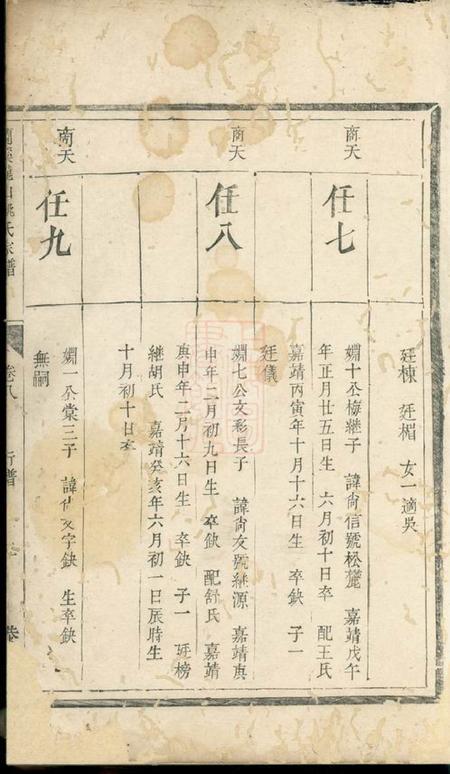 廷棟 廷楣 女一適吳
商天
任七
嫺十公梅継子 諱尙信號松麓 嘉靖戊午
年正月廿五日生 六月初十日卒 配王氏
嘉靖丙寅年十月十六日生 卒缺 子一
廷儀
商天
任八
嫺七公文彩長子 諱尙友號継源 嘉靖庚
申年二月初九日生 卒缺 配舒氏 嘉靖
庚申年二月十六日生 卒缺 子一 廷榜
継胡氏 嘉靖癸亥年六月初一日辰時生
十月初十日卒
商天
任九
嫺一公棠三子 諱尙文字缺 生卒缺
無嗣
氏家譜
卷八
行譜